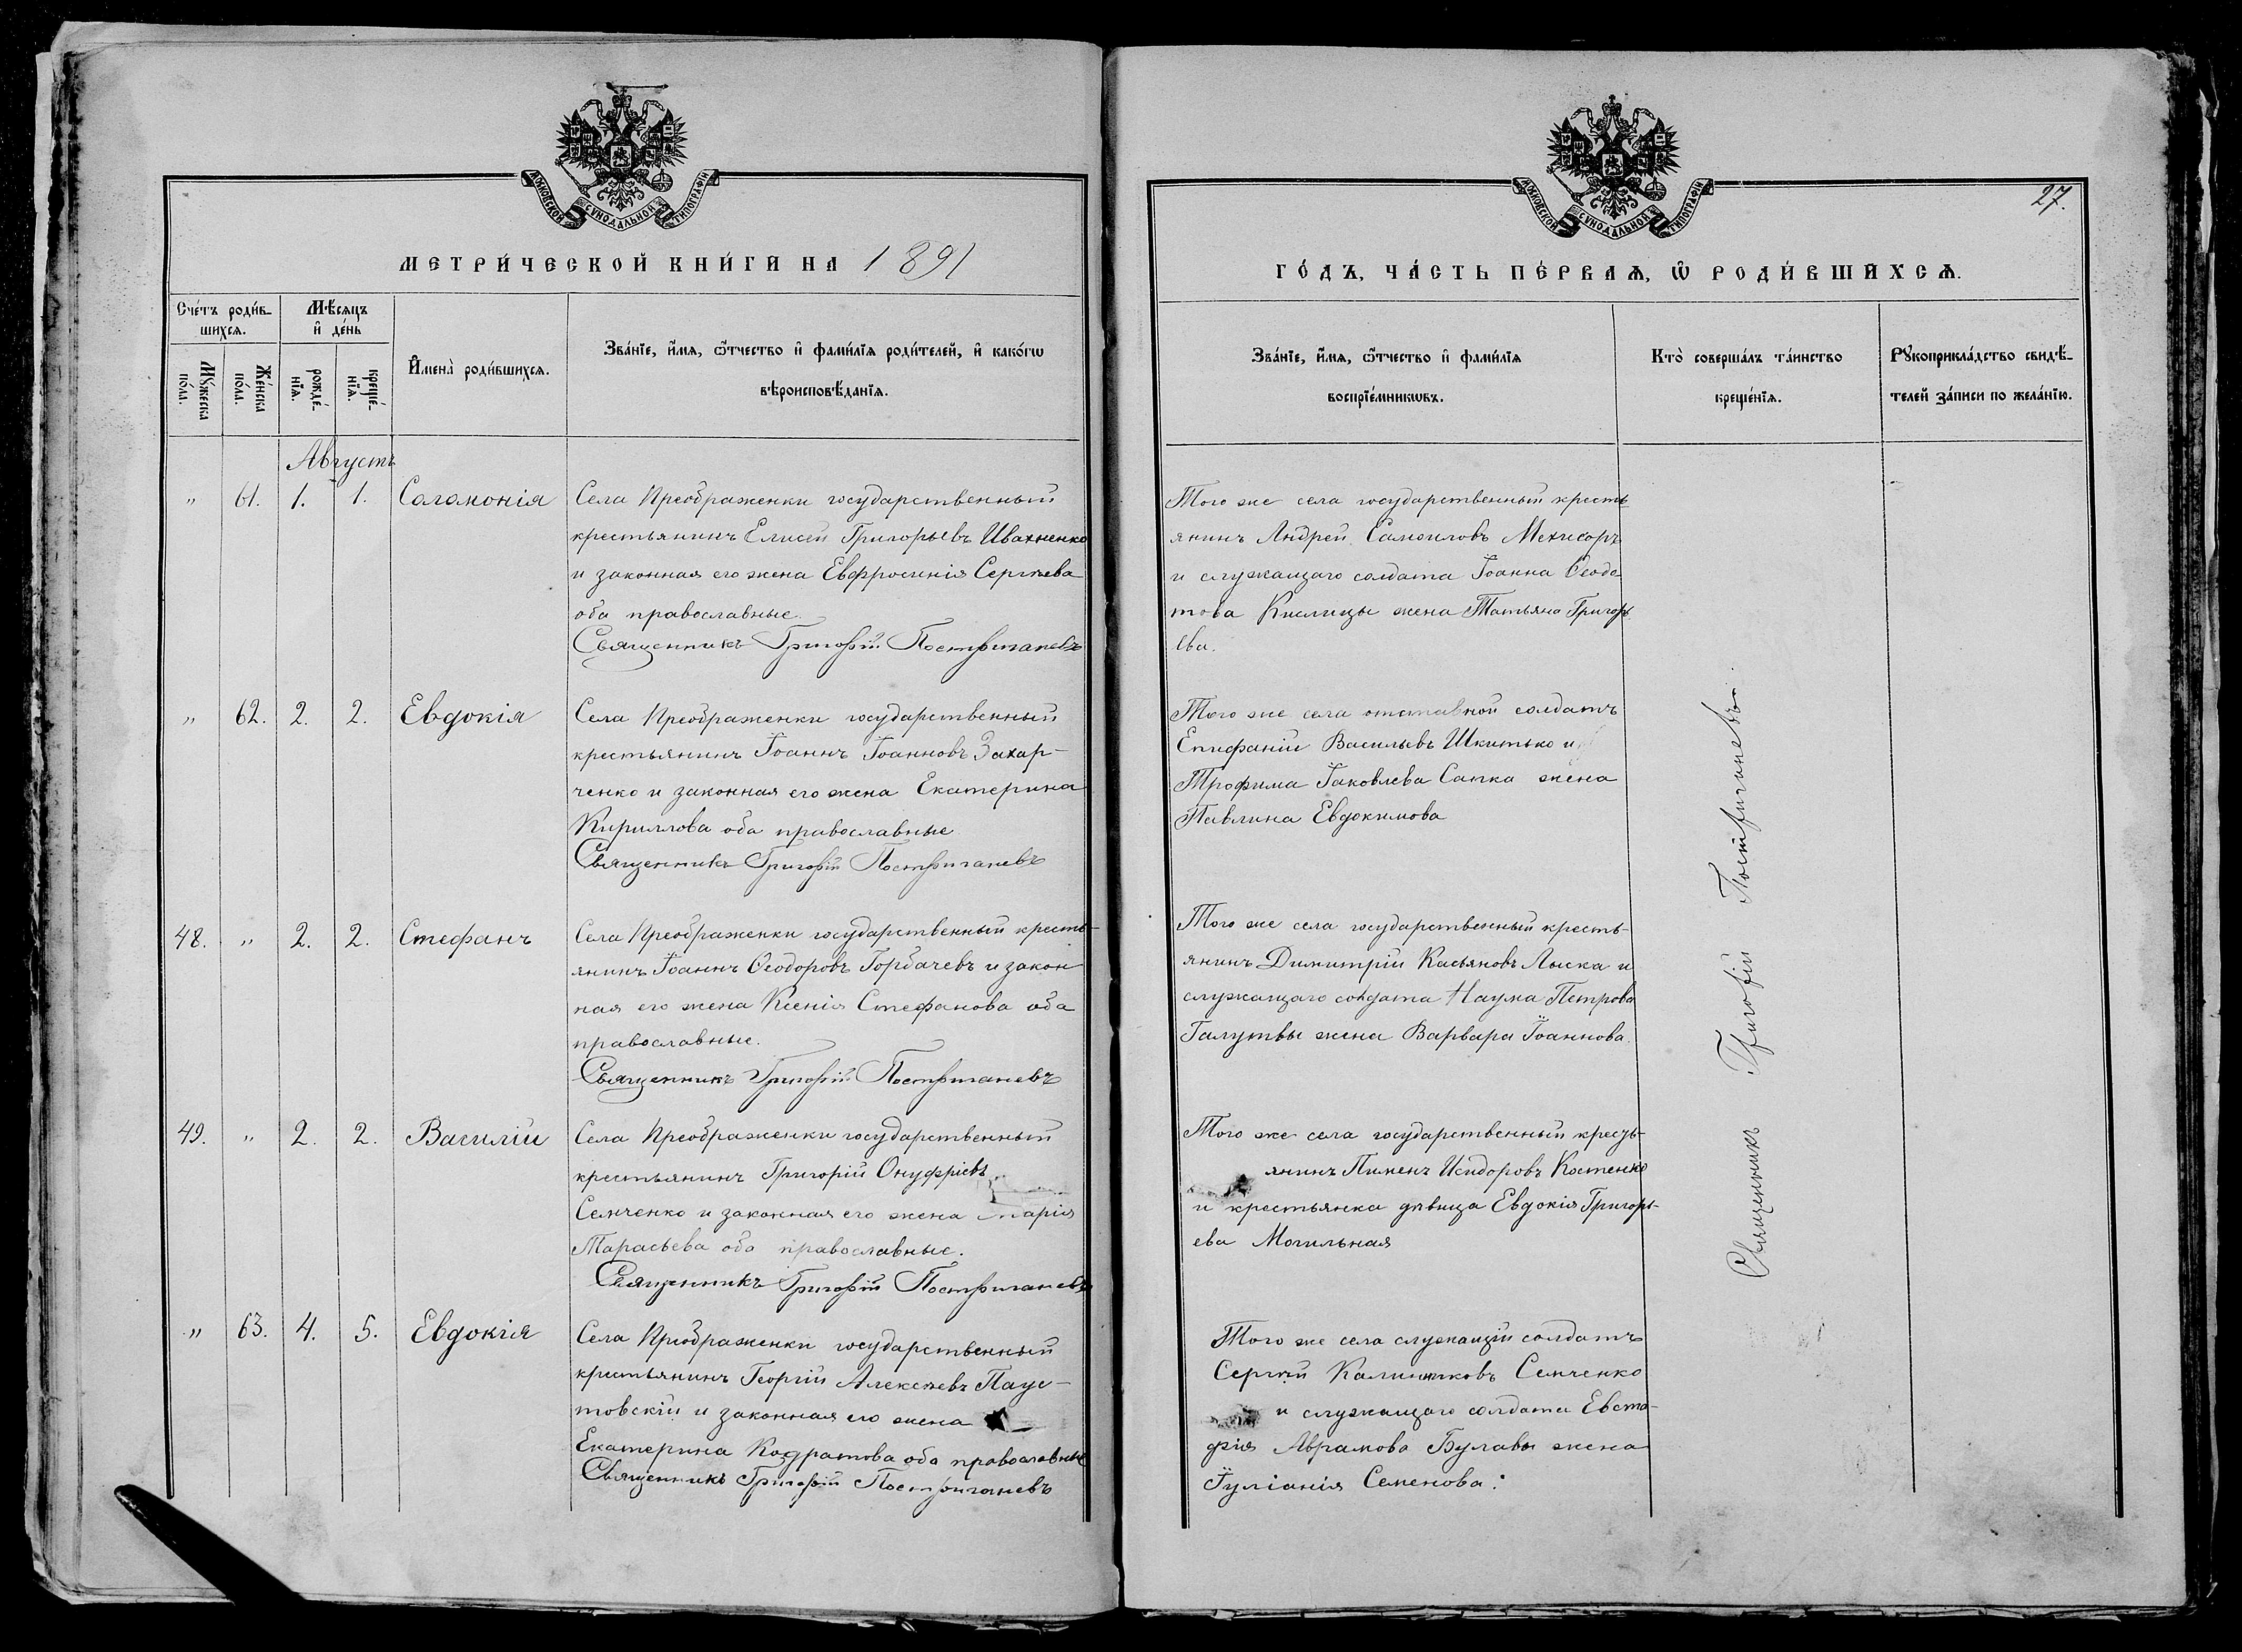 МОСКОВСКОЙ СѴНОДАЛЬНОЙ ТИПОГРАФІИ
МЕТРИ́ЧЕСКОЙ КНИ́ГИ НА 1891
Сче́тъ роди́в-
шихсѧ.
Мѣ́сѧцъ
и҆ де́нь
Мꙋ́жеска
по́ла.
Же́нска
по́ла.
рожде́-
нїѧ.
креще́-
нїѧ.
И҆мена̀ роди́вшихсѧ.
Зва́нїе, и҆́мѧ, ѻ҆́тчество и҆ фами́лїѧ роди́телей, и҆ како́гѡ
вѣроисповѣ́данїѧ.
Августъ
" 61. 1. 1. Соломонія
Села Преображенки государственный
крестьянинъ Елисей Григорьевъ Ивахненко
и законная его жена Евфросинія Сергѣева
оба православные.
Священникъ Григорій Постригачевъ
" 62. 2. 2. Евдокія
Села Преображенки государственный
крестьянинъ Іоаннъ Іоанновъ Захар-
ченко и законная его жена Екатерина
Кириллова оба православные
Священникъ Григорій Постригачевъ
48. " 2. 2. Стефанъ
Села Преображенки государственный кресть-
янинъ Іоаннъ Ѳеодоровъ Горбачевъ и закон
ная его жена Ксенія Стефанова оба
православные.
Священникъ Григорій Постригачевъ
49. " 2. 2. Василій
Села Преображенки государственный
крестьянинъ Григорій Онуфріевъ
Семченко и законная его жена Марія
Тарасьева оба православные.
Священникъ Григорій Постригачевъ
" 63. 4. 5. Евдокія
Села Преображенки государственный
крестьянинъ Георгій Алексѣевъ Паус-
товскій и законная его жена
Екатерина Кодратова оба православные
Священникъ Григорій Постригачевъ
МОСКОВСКОЙ СѴНОДАЛЬНОЙ ТИПОГРАФІИ
27.
ГО́ДЪ, ЧА́СТЬ ПЕ́РВАѦ, Ѡ҆ РОДИ́ВШИХСѦ.
Зва́нїе, и҆́мѧ, ѻ҆́тчество и҆ фами́лїѧ
воспрїе́мникѡвъ.
Кто̀ соверша́лъ та́инство
креще́нїѧ.
Рꙋкоприкла́дство свидѣ́-
телей за́писи по жела́нїю.
Того же села государственный кресть
янинъ Андрей Самоиловъ
и служащаго солдата Іоанна Ѳеодо-
това Кислицы жена Татьяна Григорь
ева.
Того же села отставной солдатъ
Епифаній Васильевъ Шкитько и
Трофима Іаковлева Сапка жена
Павлина Евдокимова
Того же села государственный кресть-
янинъ Димитрій Касьяновъ Лыска и
служащаго солдата Наума Петрова
Галутвы жена Варвара Іоаннова.
Того же села государственный кресть-
янинъ Пименъ Исидоровъ Костенко
и крестьянка дѣвица Евдокія Григорь-
ева Могильная
Того же села служащій солдатъ
Сергѣй Калиниковъ Семченко
и служащаго солдата Евста-
фія Аврамова Булавы жена
Іуліанія Семенова.
Священникъ Григорій Постригачевъ.